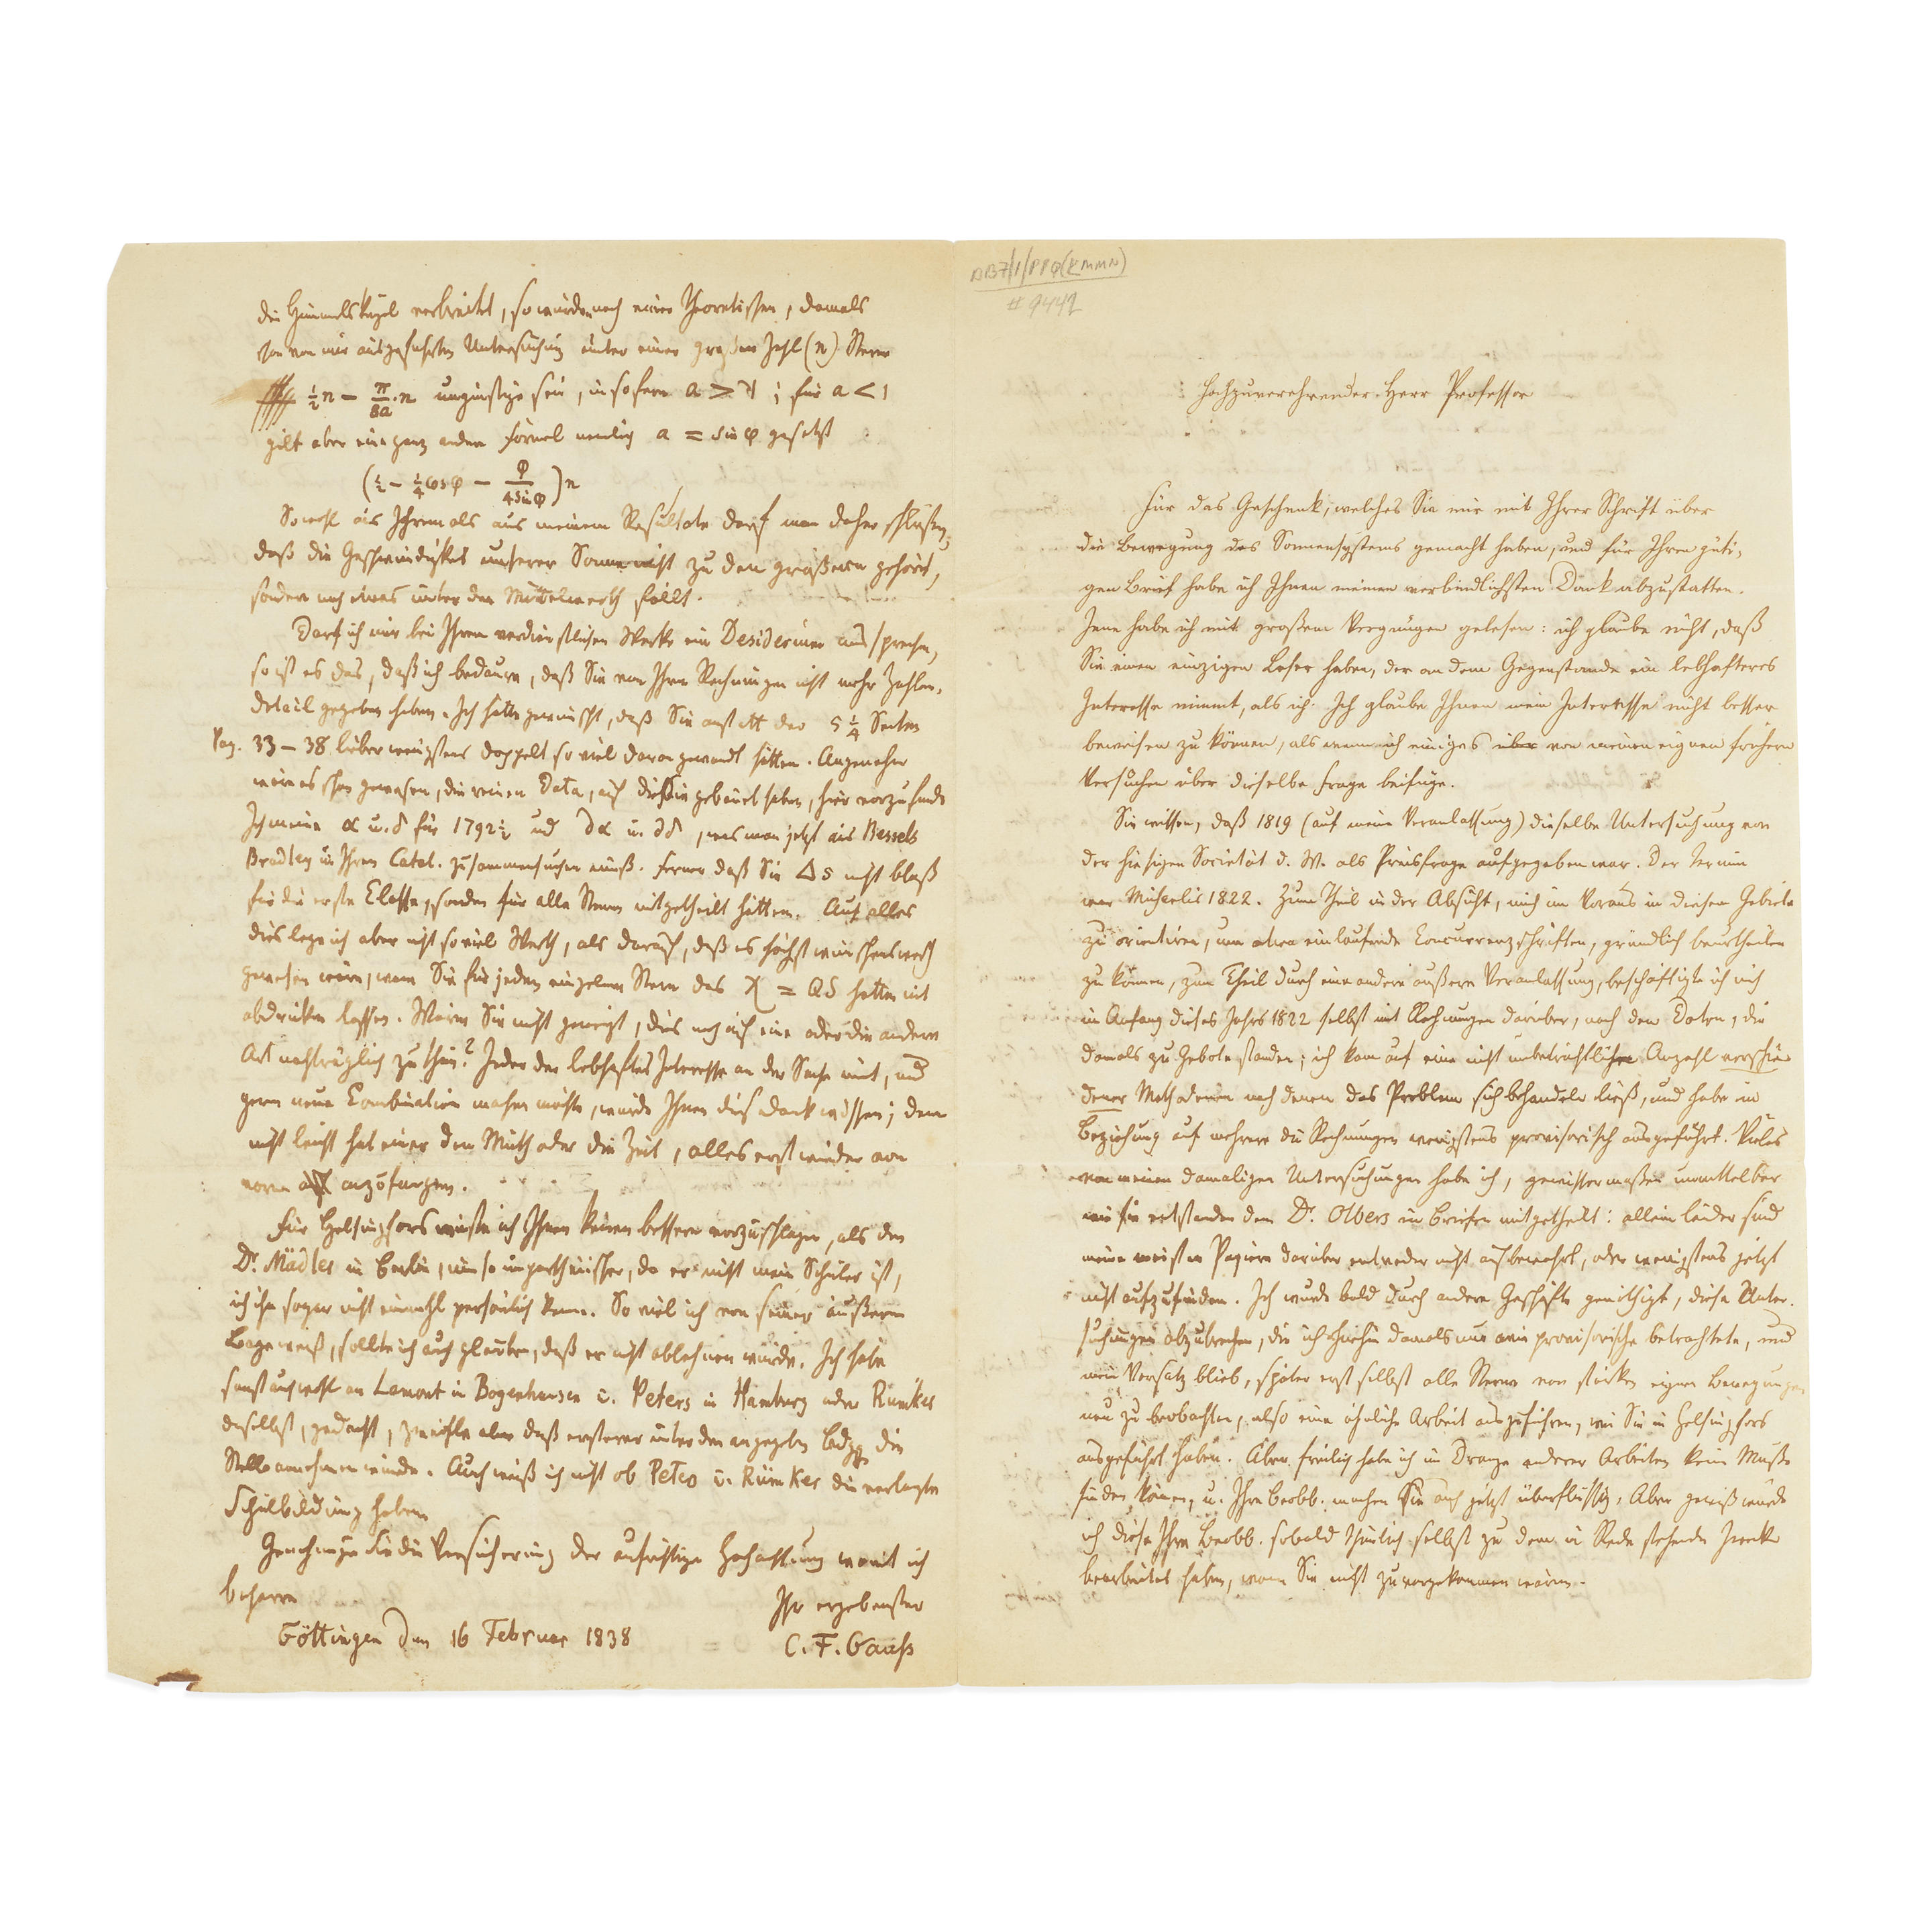 die Himmelskugel verbreitet, so würden nach einer theoretischen, damals
schon von mir ausgeführten Untersuchung unter einer großen Zahl (n) Sterne
½n − π/8a · n ungünstige sein, in sofern a > 1 ; für a < 1
gilt aber eine ganz andere Formel nemlich a = sin φ gesetzt
(½ − ¼ cos φ − φ/4 sin φ) n
Sowohl aus Ihrem als aus meinem Resultate darf man daher schließen,
daß die Geschwindigkeit unserer Sonne nicht zu den größern gehört,
sondern noch etwas unter den Mittelwerth fällt.
Darf ich mir bei Ihrem verdienstlichen Werke ein Desiderium aussprechen,
so ist es das, daß ich bedaure, daß Sie von Ihren Rechnungen nicht mehr Zahlen-
detail gegeben haben. Ich hätte gewünscht, daß Sie anstatt der 5¼ Seiten
Pag. 33–38 lieber wenigstens doppelt so viel daran gewandt hätten. Angenehm
wäre es schon gewesen, die reinen Data, auf die Sie gebaut haben, hier vorzufinden
Ich meine α u. δ für 1792½ und dα u. dδ, was man jetzt aus Bessels
Bradley u. Ihrem Catal. zusammensuchen muß. Ferner daß Sie Δs nicht bloß
für die erste Classe, sondern für alle Sterne mitgetheilt hätten. Auf alles
dies lege ich aber nicht so viel Werth, als darauf, daß es höchst wünschenswerth
gewesen wäre, wenn Sie für jeden einzelnen Stern das χ = QS hätten mit
abdrucken lassen. Wären Sie nicht geneigt, dies noch auf eine oder die andere
Art nachträglich zu thun? Jeder der lebhaftes Interesse an der Sache nimt, und
gern neue Combination machen möchte, würde Ihnen dies Dank wissen; denn
nicht leicht hat einer den Muth oder die Zeit, alles erst wieder von
vorn anzufangen.
Für Helsingfors wüßte ich Ihnen keinen bessern vorzuschlagen, als den
Dr. Mädler in Berlin, um so unpartheiischer, da er nicht mein Schüler ist,
ich ihn sogar nicht einmahl persönlich kenne. So viel ich von seiner äußern
Lage weiß, sollte ich auch glauben, daß er nicht ablehnen würde. Ich habe
sonst auch wohl an Lamont in Bogenhausen u. Peters in Hamburg oder Rümker
daselbst, gedacht, zweifle aber daß ersterer unter den angegeben Bdgg die
Stelle annehmen würde. Auch weiß ich nicht ob Peters u. Rümker die verlangte
Schulbildung haben
Genehmigen Sie die Versicherung der aufrichtigen Hochachtung womit ich
beharre
Ihr ergebenster
Göttingen den 16 Februar 1838
C. F. Gauß
DB7/1/PPQ(KMMN)
# 9449
Hochzuverehrender Herr Professor
Für das Geschenk, welches Sie mir mit Ihrer Schrift über
die Bewegung des Sonnensystems gemacht haben, und für Ihren güti-
gen Brief habe ich Ihnen meinen verbindlichsten Dank abzustatten.
Jene habe ich mit großem Vergnügen gelesen: ich glaube nicht, daß
Sie einen einzigen Leser haben, der an dem Gegenstande ein lebhafteres
Interesse nimmt, als ich. Ich glaube Ihnen mein Interesse nicht besser
beweisen zu können, als wenn ich einiges über von meinen eignen frühern
Versuchen über dieselbe Frage beifüge.
Sie wissen, daß 1819 (auf meine Veranlassung) dieselbe Untersuchung von
der hiesigen Societät d. W. als Preisfrage aufgegeben war. Der Termin
war Michaelis 1822. Zum Theil in der Absicht, mich im Voraus in diesem Gebiete
zu orientiren, um etwa einlaufende Concurrenzschriften, gründlich beurtheilen
zu können, zum Theil durch eine andere äußere Veranlassung, beschäftigte ich mich
im Anfang dieses Jahrs 1822 selbst mit Rechnungen darüber, nach den Daten, die
damals zu Gebote standen; ich kam auf eine nicht unbeträchtliche Anzahl verschie-
dener Methoden nach denen das Problem sich behandeln ließ, und habe in
Beziehung auf mehrere die Rechnungen wenigstens provisorisch ausgeführt. Vieles
von meinen damaligen Untersuchungen habe ich, gewissermaßen unmittelbar
wie sie entstanden dem Dr. Olbers in Briefen mitgetheilt: allein leider sind
meine meisten Papiere darüber entweder nicht aufbewahrt, oder wenigstens jetzt
nicht aufzufinden. Ich wurde bald durch andere Geschäfte genöthigt, diese Unter-
suchungen abzubrechen, die ich ohnehin damals nur wie provisorische betrachtete, und
mein Vorsatz blieb, später erst selbst alle Sterne von starken eignen Bewegungen
neu zu beobachten, also eine ähnliche Arbeit auszuführen, wie Sie in Helsingfors
ausgeführt haben. Aber freilich habe ich im Drange anderer Arbeiten keine Muße
finden können, u. Ihre Beobb. machen sie auch jetzt überflüssig. Aber gewiß würde
ich diese Ihre Beobb. sobald thunlich selbst zu dem in Rede stehenden Zwecke
bearbeitet haben, wenn Sie nicht zuvorgekommen wären.